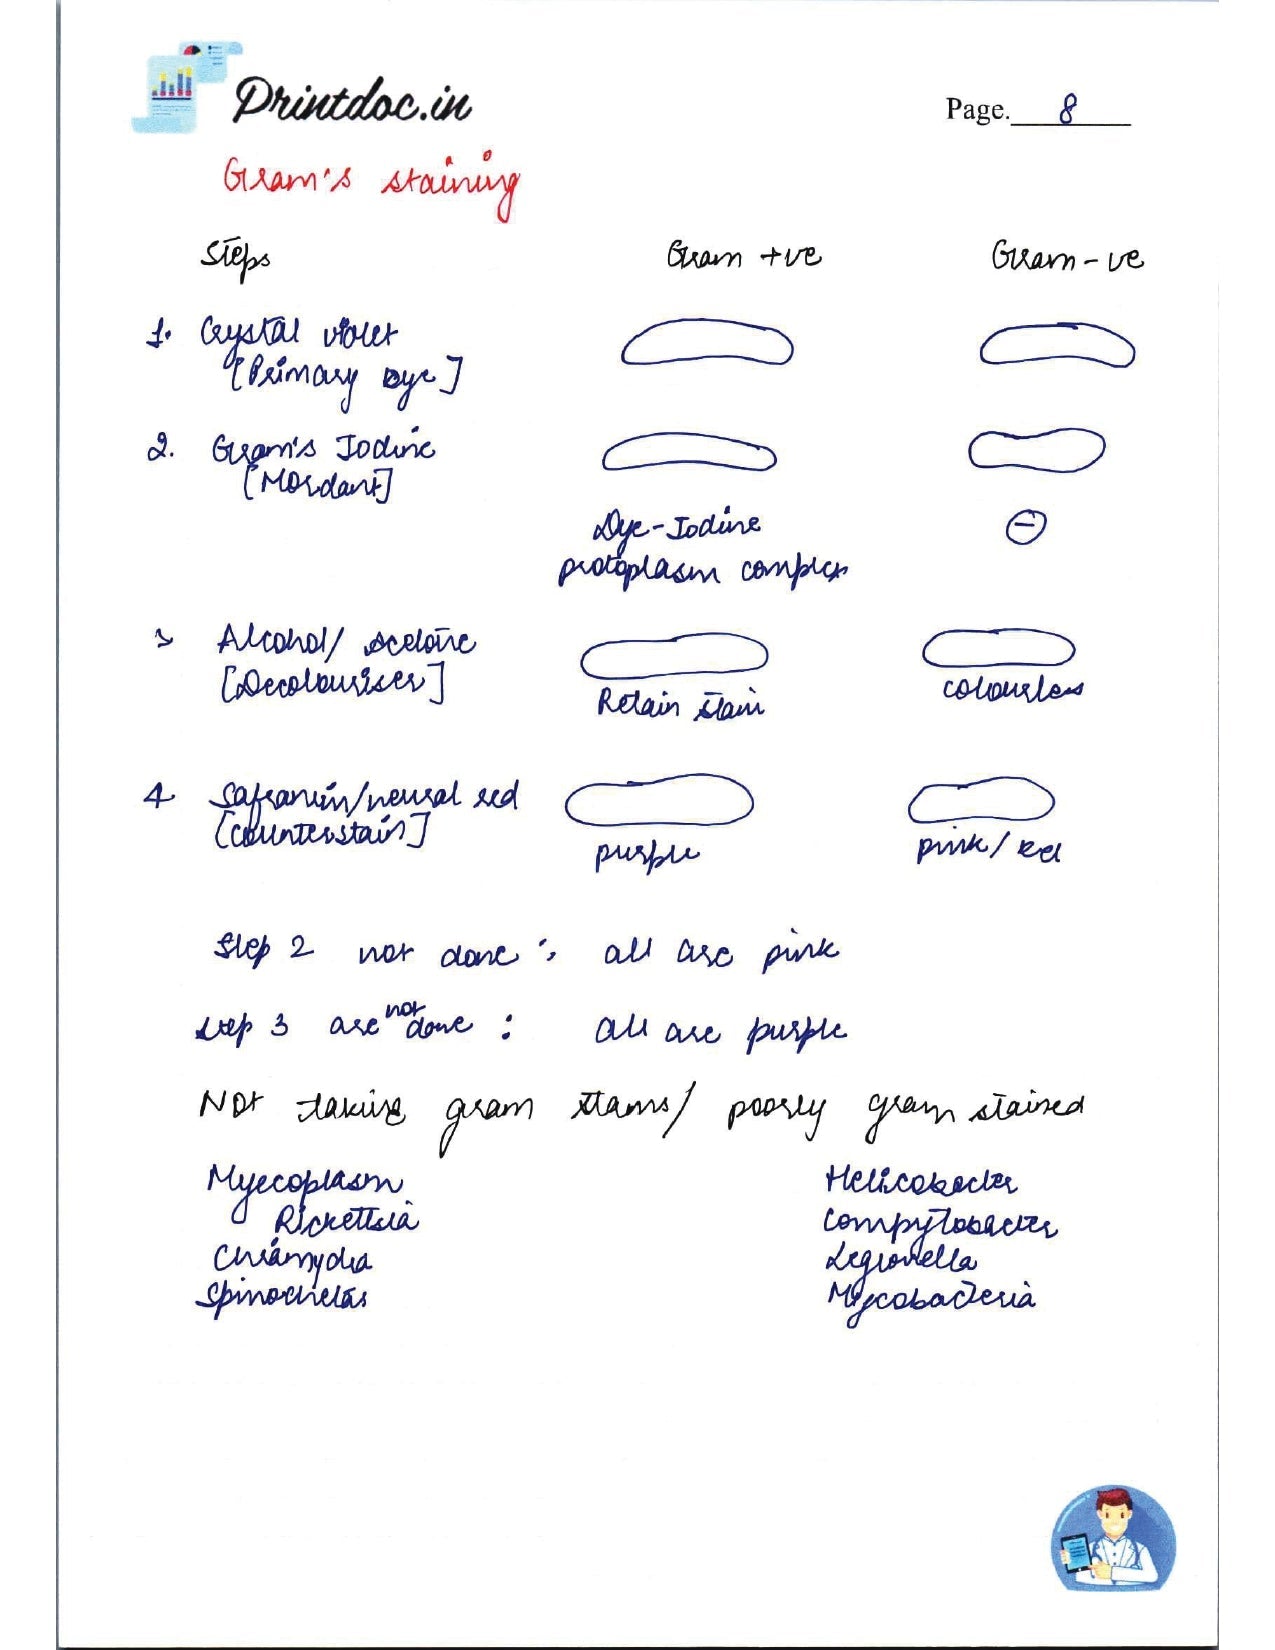 Printdoc.in
Page. 8
Gram's staining
Steps Gram +ve Gram -ve
1. Crystal violet
[Primary Dye]
2. Gram's Iodine
[Mordant]
Dye-Iodine ⊖
protoplasm complex
3 Alcohol/ Acetone
[Decolouriser]
Retain stain colourless
4 Safranin/neural red
[counterstain]
purple pink/red
Step 2 not done : all are pink
Step 3 are not done : all are purple
Not taking gram stains/ poorly gram stained
Myecoplasm Helicobacter
Rickettsia Compylobacter
Chlamydia Legionella
Spirochetas Mycobacteria